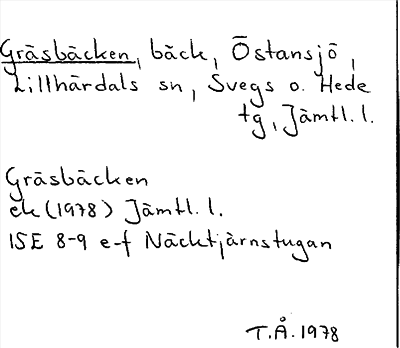 Gräsbäcken, bäck, Östansjö,
Lillhärdals sn, Svegs o. Hede
tg, Jämtl. l.
Gräsbäcken
ek (1978) Jämtl. l.
15E 8-9 e-f Näcktjärnstugan
T.Å. 1978